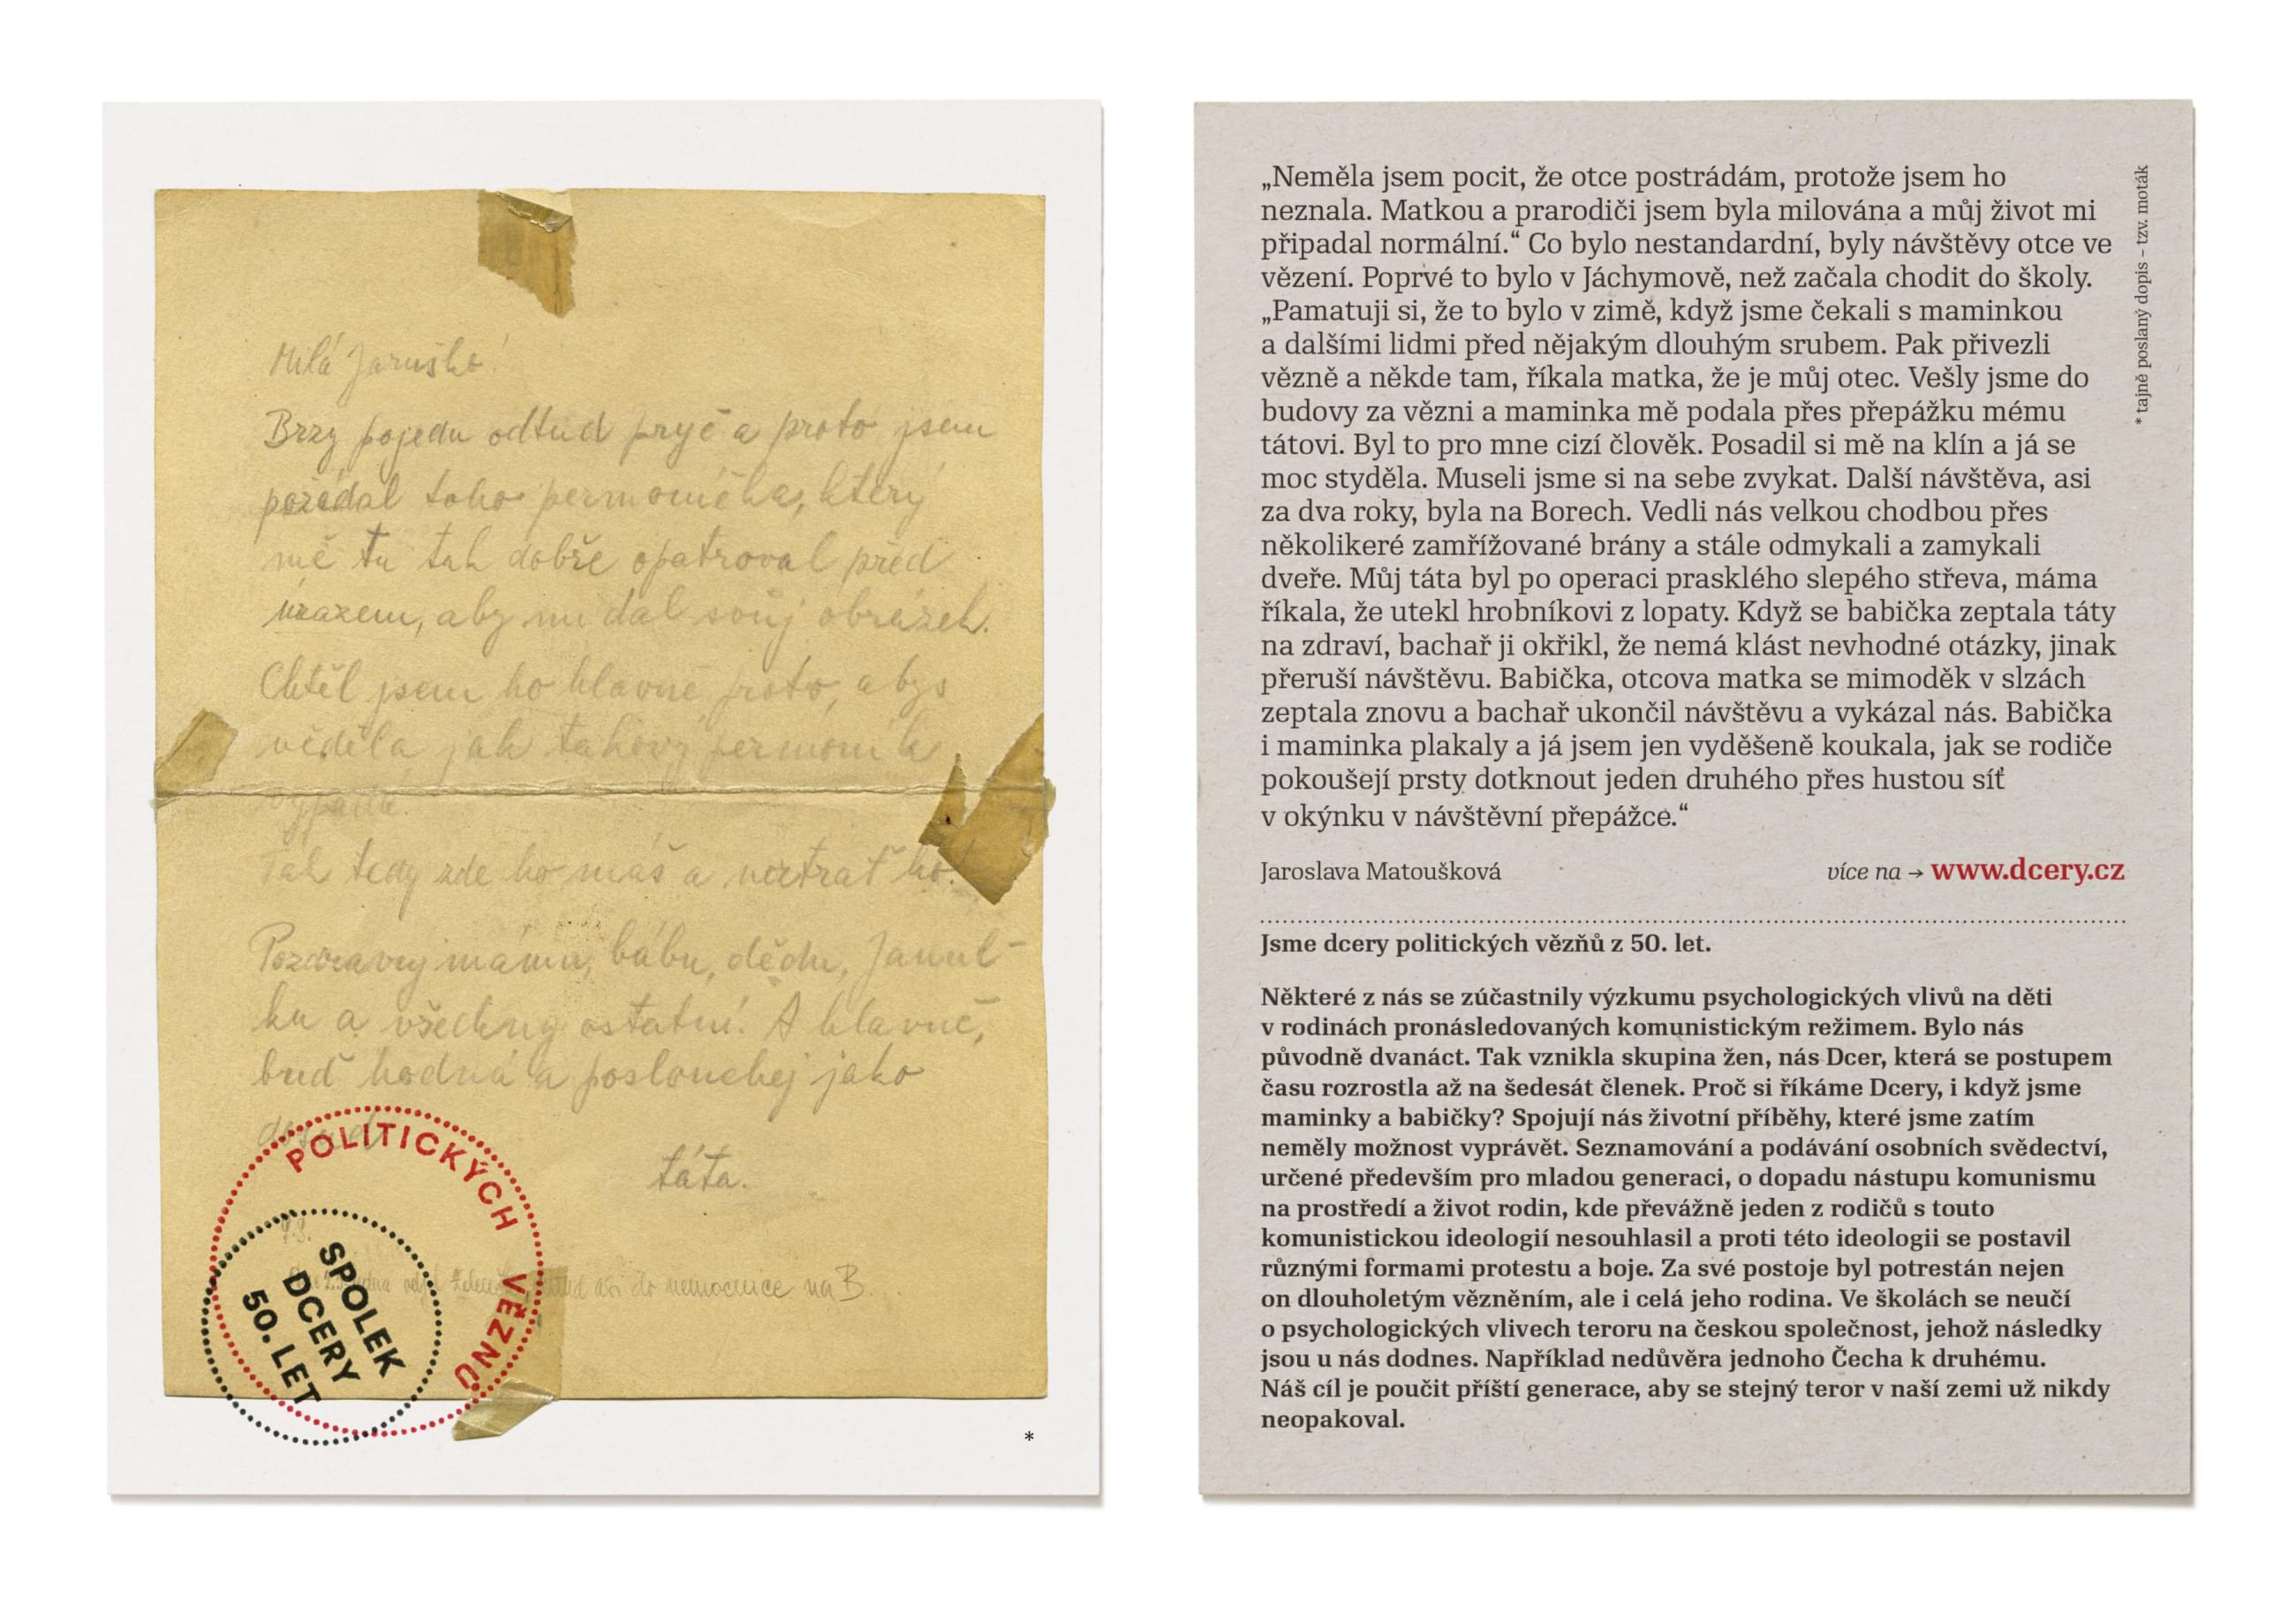 Milá Jaruško!
Brzy pojedu odtud pryč a proto jsem
požádal toho permoníčka, který
mě tu tak dobře opatroval před
úrazem, aby mi dal svůj obrázek.
Chtěl jsem ho hlavně proto, abys
věděla jak takový permoník
vypadá.
Tak tedy zde ho máš a neztrať ho!
Pozdravuj mámu, bábu, dědu, Janul-
ku a všechny ostatní. A hlavně,
buď hodná a poslouchej jako
dosud
táta.
P.S.
do nemocnice na B.
POLITICKÝCH VĚZŇŮ
SPOLEK
DCERY
50. LET
*
„Neměla jsem pocit, že otce postrádám, protože jsem ho
neznala. Matkou a prarodiči jsem byla milována a můj život mi
připadal normální.“ Co bylo nestandardní, byly návštěvy otce ve
vězení. Poprvé to bylo v Jáchymově, než začala chodit do školy.
„Pamatuji si, že to bylo v zimě, když jsme čekali s maminkou
a dalšími lidmi před nějakým dlouhým srubem. Pak přivezli
vězně a někde tam, říkala matka, že je můj otec. Vešly jsme do
budovy za vězni a maminka mě podala přes přepážku mému
tátovi. Byl to pro mne cizí člověk. Posadil si mě na klín a já se
moc styděla. Museli jsme si na sebe zvykat. Další návštěva, asi
za dva roky, byla na Borech. Vedli nás velkou chodbou přes
několikeré zamřížované brány a stále odmykali a zamykali
dveře. Můj táta byl po operaci prasklého slepého střeva, máma
říkala, že utekl hrobníkovi z lopaty. Když se babička zeptala táty
na zdraví, bachař ji okřikl, že nemá klást nevhodné otázky, jinak
přeruší návštěvu. Babička, otcova matka se mimoděk v slzách
zeptala znovu a bachař ukončil návštěvu a vykázal nás. Babička
i maminka plakaly a já jsem jen vyděšeně koukala, jak se rodiče
pokoušejí prsty dotknout jeden druhého přes hustou síť
v okýnku v návštěvní přepážce.“
Jaroslava Matoušková
více na → www.dcery.cz
Jsme dcery politických vězňů z 50. let.
Některé z nás se zúčastnily výzkumu psychologických vlivů na děti
v rodinách pronásledovaných komunistickým režimem. Bylo nás
původně dvanáct. Tak vznikla skupina žen, nás Dcer, která se postupem
času rozrostla až na šedesát členek. Proč si říkáme Dcery, i když jsme
maminky a babičky? Spojují nás životní příběhy, které jsme zatím
neměly možnost vyprávět. Seznamování a podávání osobních svědectví,
určené především pro mladou generaci, o dopadu nástupu komunismu
na prostředí a život rodin, kde převážně jeden z rodičů s touto
komunistickou ideologií nesouhlasil a proti této ideologii se postavil
různými formami protestu a boje. Za své postoje byl potrestán nejen
on dlouholetým vězněním, ale i celá jeho rodina. Ve školách se neučí
o psychologických vlivech teroru na českou společnost, jehož následky
jsou u nás dodnes. Například nedůvěra jednoho Čecha k druhému.
Náš cíl je poučit příští generace, aby se stejný teror v naší zemi už nikdy
neopakoval.
* tajně poslaný dopis – tzv. moták